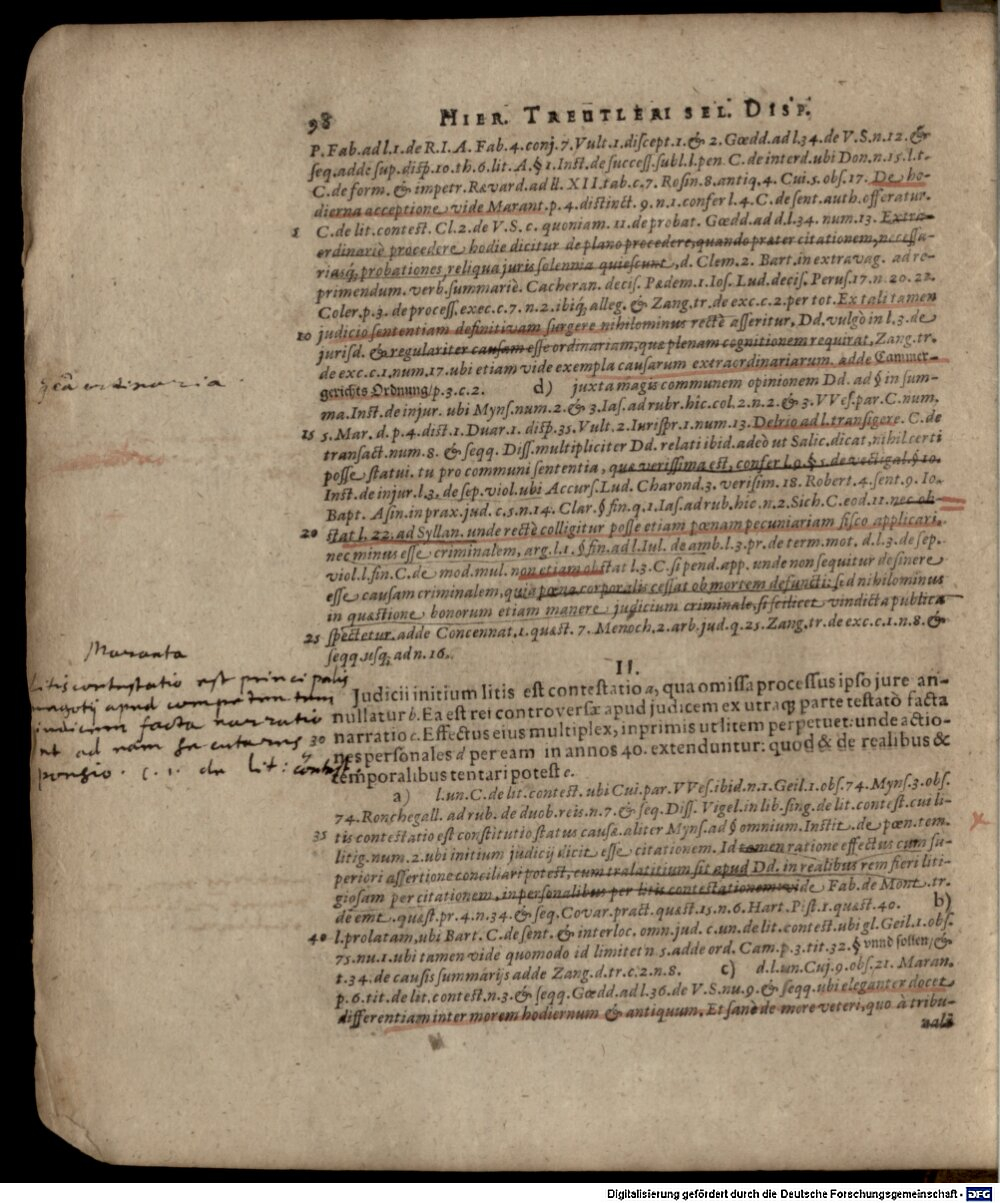 98 HIER. TREUTLERI SEL. DISP.
P. Fab. ad l.1. de R.I.A. Fab. 4. conj. 7. Vult. 1. discept. 1. & 2. Gœdd. ad l.34. de V.S. n.12. &
seq. adde sup. disp. 10. th. 6. lit. A. § 1. Inst. de success. subl. l. pen. C. de interd. ubi Don. n.15. l.1.
C. de form. & impetr. Rævard. ad ll. XII. tab. c.7. Rosin. 8. antiq. 4. Cui. 5. obs. 17. De ho-
dierna acceptione vide Marant. p. 4. distinct. 9. n.1. confer l.4. C. de sent. auth. offeratur.
5 C. de lit. contest. Cl. 2. de V.S. c. quoniam. 11. de probat. Gœdd. ad d.l.34. num. 13. Extra-
ordinariè procedere hodie dicitur de plano procedere, quando præter citationem, necessa-
riasq́; probationes, reliqua juris solennia quiescunt, d. Clem. 2. Bart. in extravag. ad re-
primendum. verb. summariè. Cacheran. decis. Pædem. 1. Ios. Lud. decis. Perus. 17. n. 20. 22.
Coler. p.3. de process. exec. c.7. n.2. ibiq́; alleg. & Zang. tr. de exc. c.2. per tot. Ex tali tamen
10 judicio sententiam definitivam surgere nihilominus rectè asseritur, Dd. vulgò in l.3. de
jurisd. & regulariter causam esse ordinariam, quæ plenam cognitionem requirat, Zang. tr.
de exc. c.1. num. 17. ubi etiam vide exempla causarum extraordinariarum. adde Cammer-
gerichts Ordnung/ p.3. c.2. d) juxta magis communem opinionem Dd. ad § in sum-
ma. Inst. de injur. ubi Myns. num. 2. & 3. Ias. ad rubr. hic. col. 2. n. 2. & 3. VVes. par. C. num.
15 5. Mar. d. p. 4. dist. 1. Duar. 1. disp. 35. Vult. 2. Iurispr. 1. num. 13. Delrio ad l. transigere. C. de
transact. num. 8. & seqq. Diss. multipliciter Dd. relati ibid. adeò ut Salic. dicat, nihil certi
posse statui. tu pro communi sententia, quæ verissima est, confer l.9. § 5. de vectigal. § 10.
Inst. de injur. l.3. de sep. viol. ubi Accurs. Lud. Charond. 3. verisim. 18. Robert. 4. sent. 9. Io.
Bapt. Asin. in prax. jud. c.5. n.14. Clar. § fin. q.1. Ias. ad rub. hic. n.2. Sich. C. eod. 11. nec ob-
20 stat l. 22. ad Syllan. unde rectè colligitur posse etiam pœnam pecuniariam fisco applicari,
nec minus esse criminalem, arg. l.1. § fin. ad l. Iul. de amb. l.3. pr. de term. mot. d. l.3. de sep.
viol. l. fin. C. de mod. mul. non etiam obstat l.3. C. si pend. app. unde non sequitur desinere
esse causam criminalem, quia pœna corporalis cessat ob mortem defuncti: sed nihilominus
in quæstione bonorum etiam manere judicium criminale, si scilicet vindicta publica
25 spectetur. adde Concennat. 1. quæst. 7. Menoch. 2. arb. jud. q. 25. Zang. tr. de exc. c.1. n.8. &
seqq. usq; ad n. 16.
II.
Judicii initium litis est contestatio a, qua omissa processus ipso jure an-
nullatur b. Ea est rei controversæ apud judicem ex utraq; parte testatò facta
30 narratio c. Effectus eius multiplex, inprimis ut litem perpetuet: unde actio-
nes personales d per eam in annos 40. extenduntur: quod & de realibus &
temporalibus tentari potest e.
a) l. un. C. de lit. contest. ubi Cui. par. VVes. ibid. n.1. Geil. 1. obs. 74. Myns. 3. obs.
74. Ronchegall. ad rub. de duob. reis. n.7. & seq. Diss. Vigel. in lib. sing. de lit. contest. cui li-
35 tis contestatio est constitutio status causæ. aliter Myns. ad § omnium. Instit. de pœn. tem.
litig. num. 2. ubi initium judicij dicit esse citationem. Id tamen ratione effectus cum su-
periori assertione conciliari potest, cum tralatitium sit apud Dd. in realibus rem fieri liti-
giosam per citationem, in personalibus per litis contestationem vide Fab. de Mont. tr.
de emt. quæst. pr. 4. n.34. & seq. Covar. pract. quæst. 15. n.6. Hart. Pist. 1. quæst. 40. b)
40 l. prolatam, ubi Bart. C. de sent. & interloc. omn. jud. c. un. de lit. contest. ubi gl. Geil. 1. obs.
75. nu. 1. ubi tamen vide quomodo id limitet n. 5. adde ord. Cam. p.3. tit. 32. § unnd sollen/ &
t.34. de causis summarijs adde Zang. d. tr. c.2. n.8. c) d. l. un. Cuj. 9. obs. 21. Maran.
p.6. tit. de lit. contest. n.3. & seqq. Gœdd. ad l.36. de V.S. nu. 9. & seqq. ubi eleganter docet
differentiam inter morem hodiernum & antiquum. Et sanè de more veteri, quo à tribu-
nali
ordinaria.
Maranta
Litis contestatio est principalis
negotij apud competentem
iudicem facta narratio
c. 1. de lit: contest.